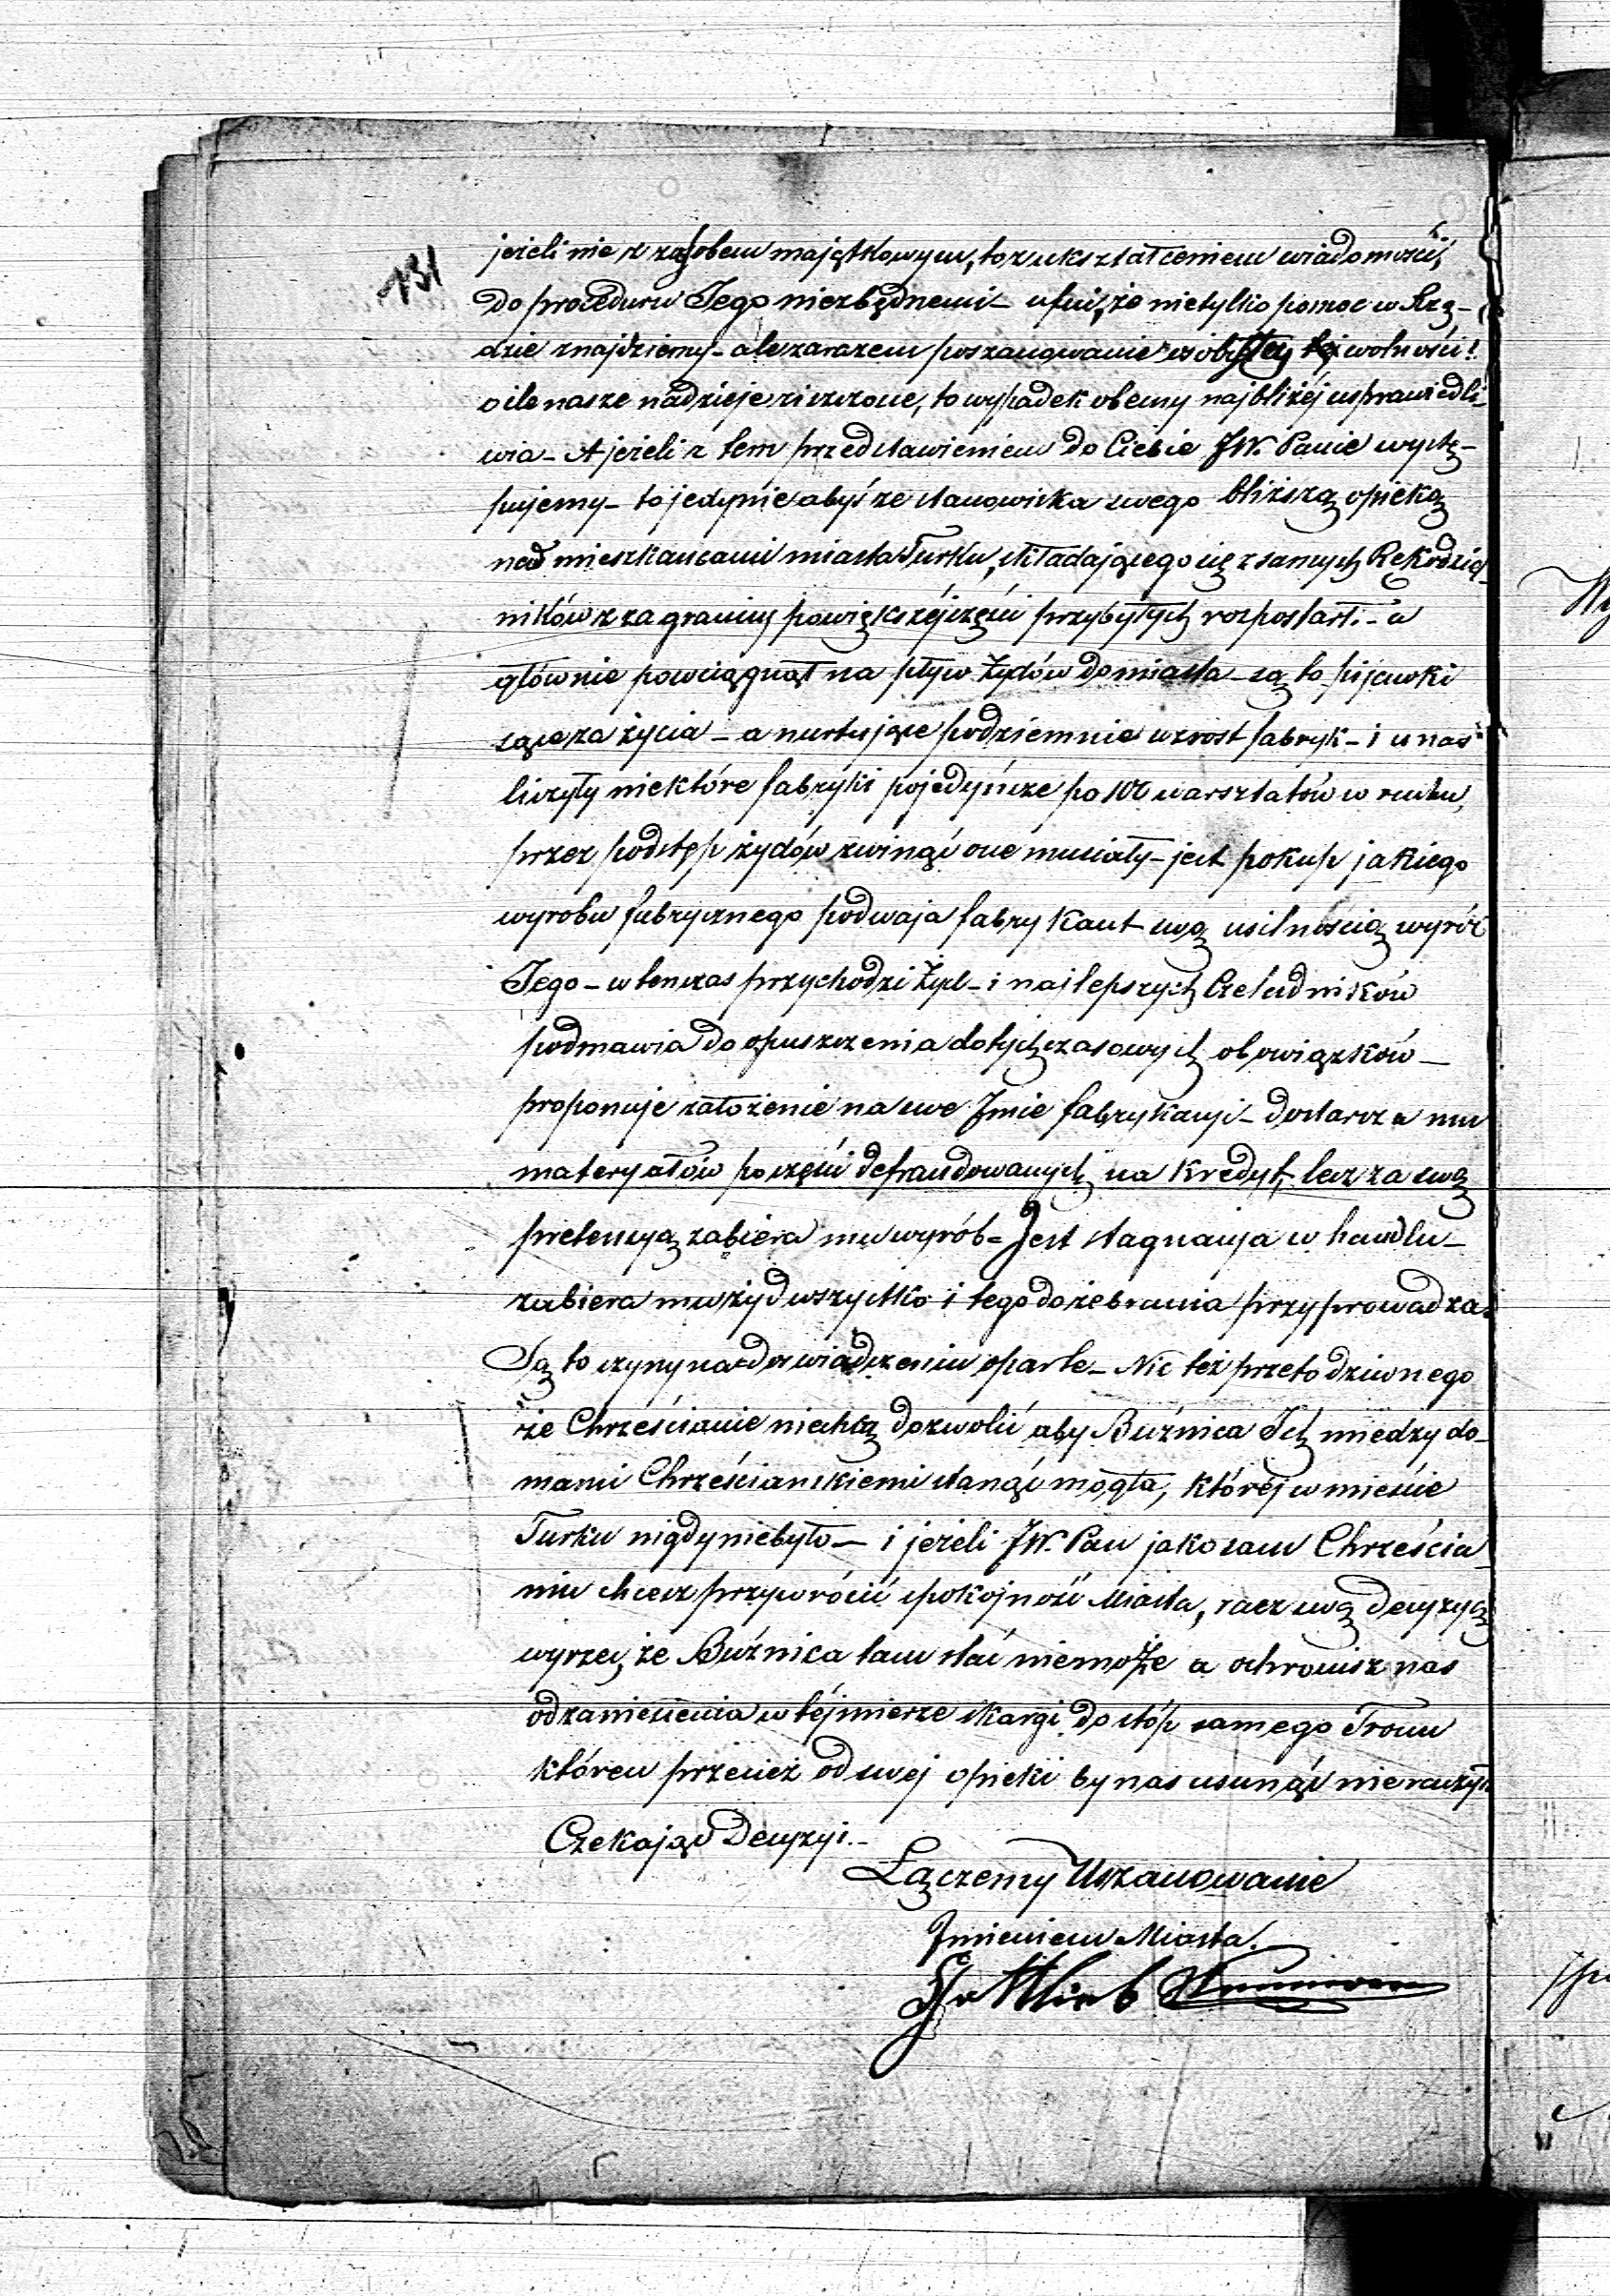 131
jeżeli nie z zasobem majątkowym, to z ukształceniem wiadomości,
do procederu Tego niezbędnemi – ufni, że nietylko pomoc w Rzą-
dzie znajdziemy – ale zarazem poszanowanie osobistej woności!
o ile nasze nadzieje ziszczone, to wypadek obecny najbliżéj usprawiedli-
wia – A jeżeli z tem przedstawieniem do Ciebie JW. Panie wystę-
pujemy – to jedynie abyś ze stanowiska swego bliższą opieką
nad mieszkańcami miasta Turku, składającego się z samych Rękodziel-
ników z zagranicy powiększéj części przybyłych rozpostarł. – a
głównie powciągnął na pływ Żydów do miasta – są to pijawki
sącza życia – a nurtujące podziemnie wzrost fabryk – i u nas
liczyły niektóre fabryki pojedyńcze po 100 warsztatów w ruchu,
przez podstęp żydów zwinąć one musiały – jest pokup jakiego
wyrobu fabrycznego podwaja fabrykant swą usilnością wyrób
Tego – wtenczas przychodzi Żyd – i najlepszych Czeladników
podmawia do opuszczenia dotychczasowych obowiązków –
proponuje założenie na swe Jmie fabrykacyi – dostarcza mu
materyałów po części defraudowanych na kredyt, lecz za swą
pretensyą zabiera mu wyrób = Jest stagnacya w handlu –
zabiera mu żyd wszystko i tego do żebrania przyprowadza.
Są to czyny na doświadczeniu oparte – Nic też przeto dziwnego
że Chrześcianie niechcą dozwolić aby Buźnica Ich miedzy do-
mami Chrześcianskiemi stanąć mogła, któréj w mieście
Turku nigdy niebyło – i jeżeli JW. Pan jako sam Chrześcia-
nin chcesz przywrócić spokojność Miasta, racz swą decyzyą
wyrzec, że Buźnica tam stać niemoże a ochronisz nas
od zaniesienia w téj mierze skargi do stóp samego Tronu
któren przecież od swej opieki by nas usunąć nie raczył.
Czekając Decyzyi. –
Łączemy Uszanowanie
Jmieniem Miasta.
Gottlieb